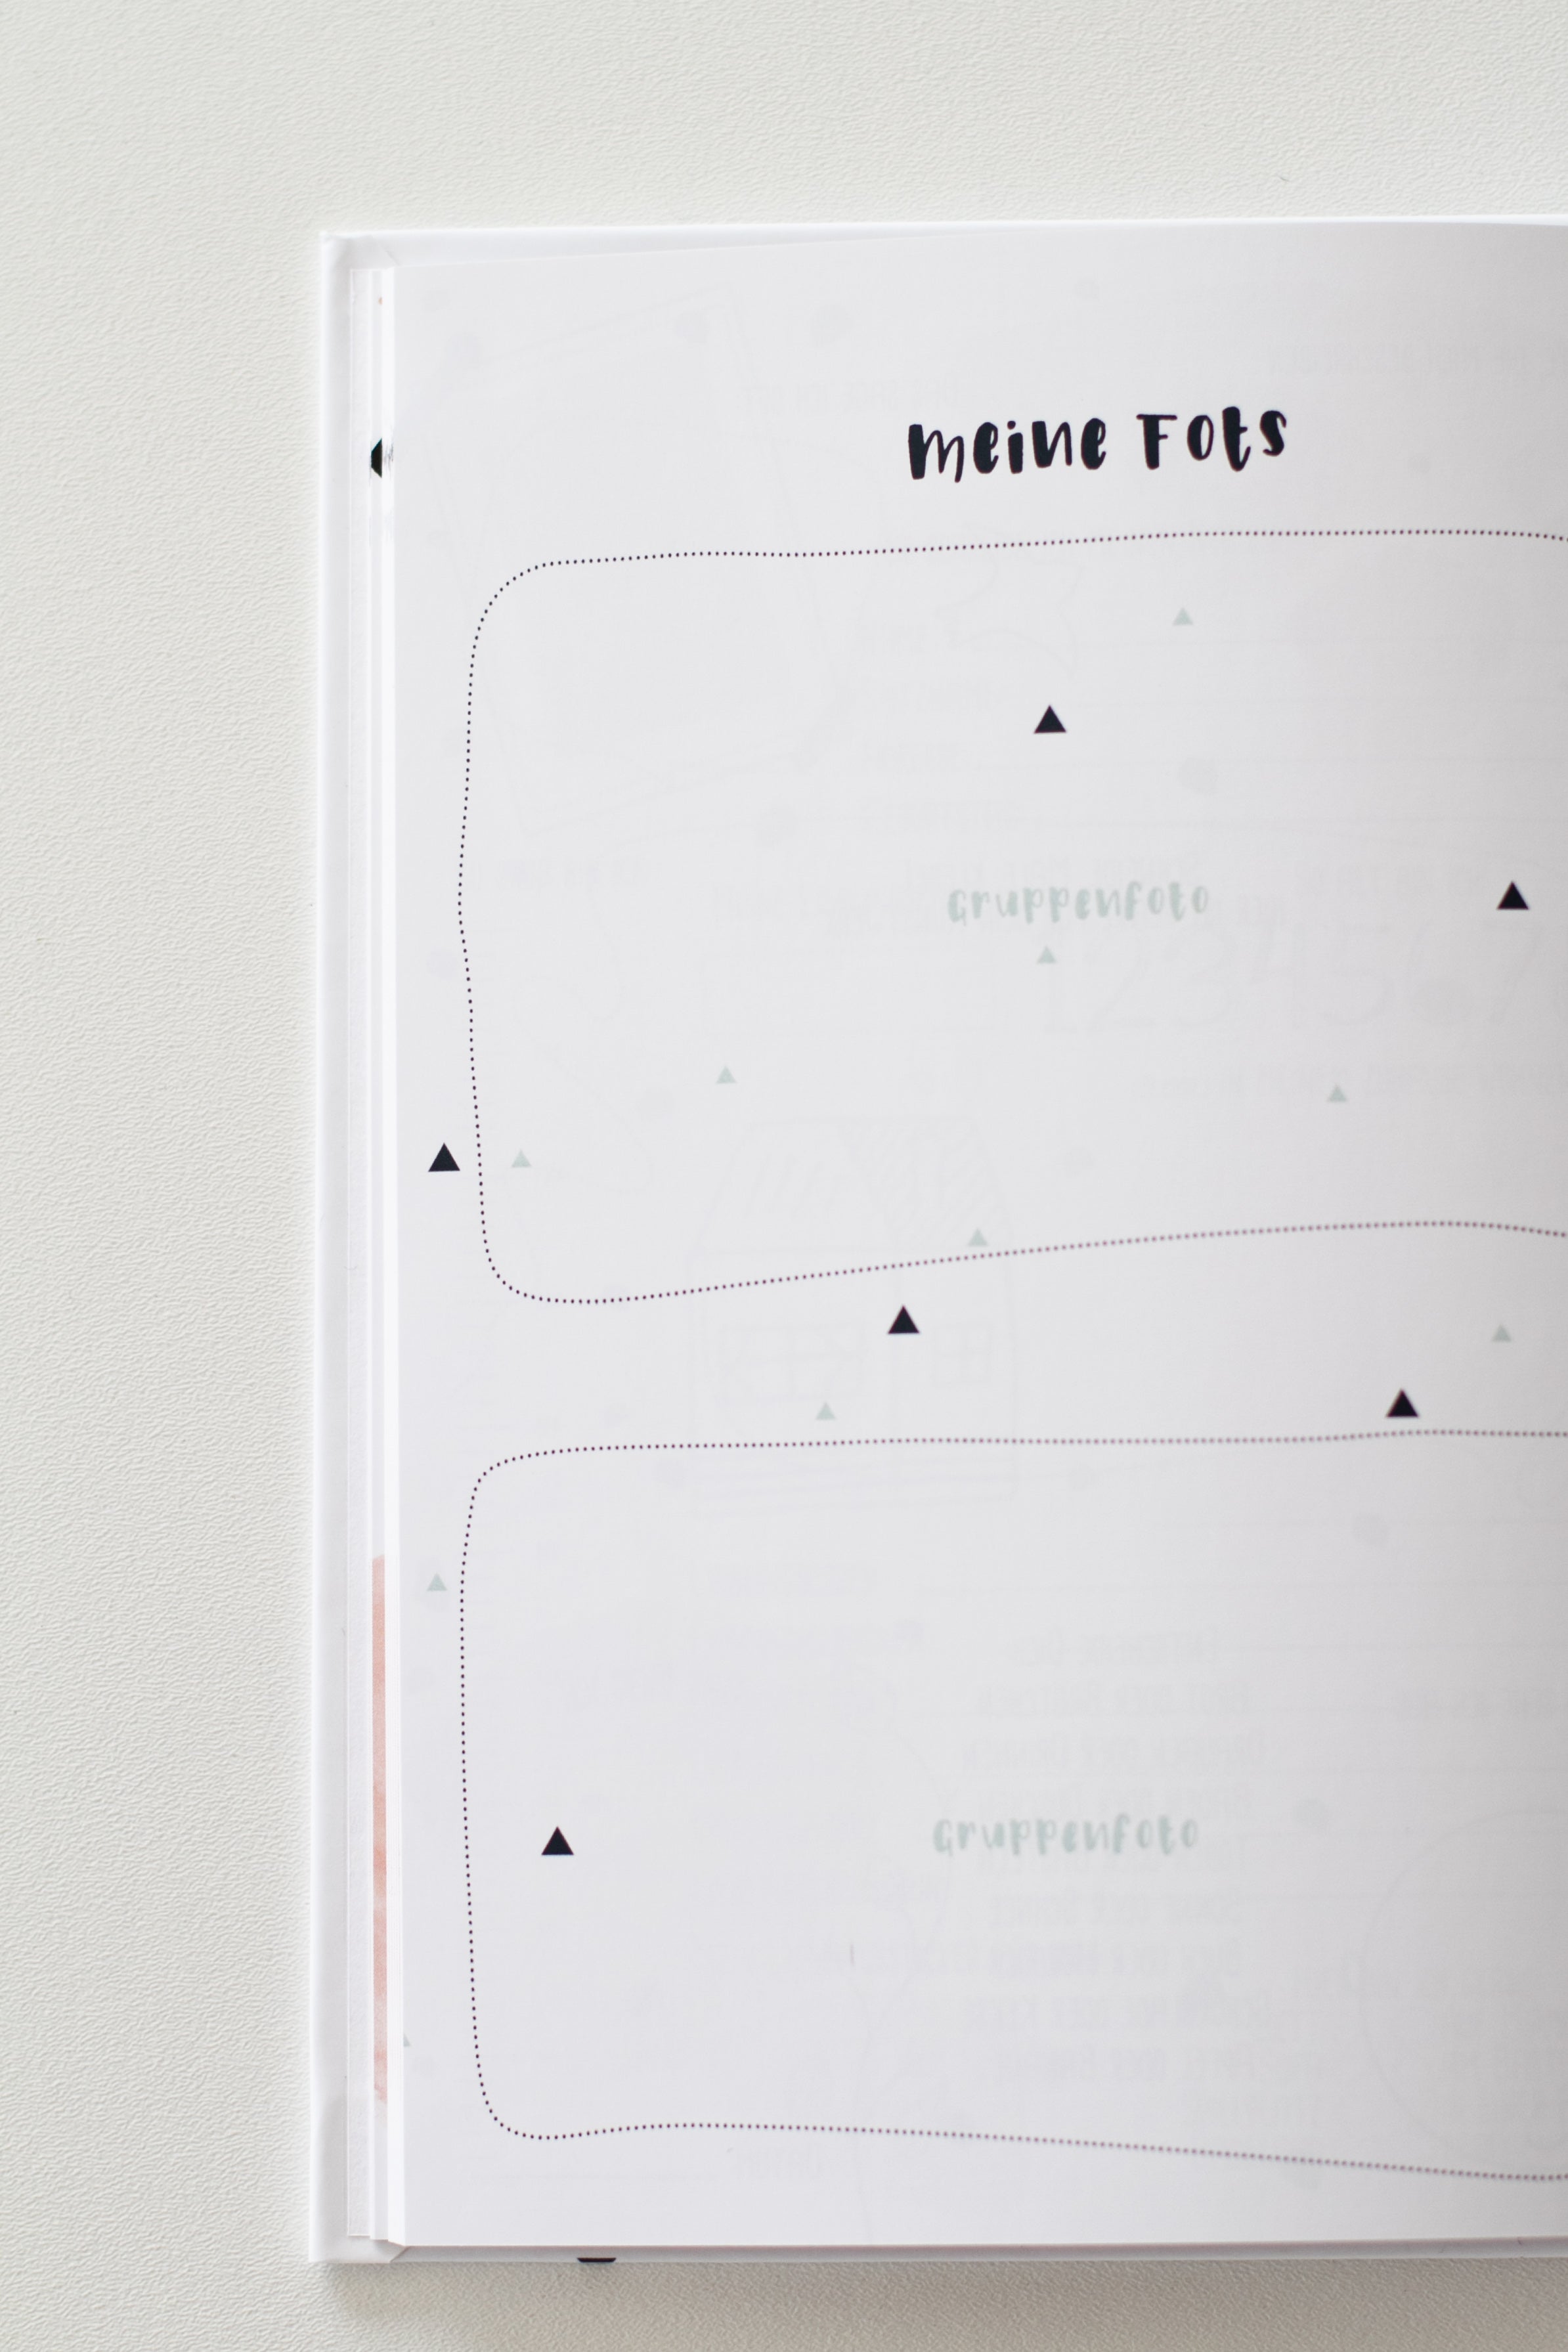 meine Fots
Gruppenfoto
Gruppenfoto